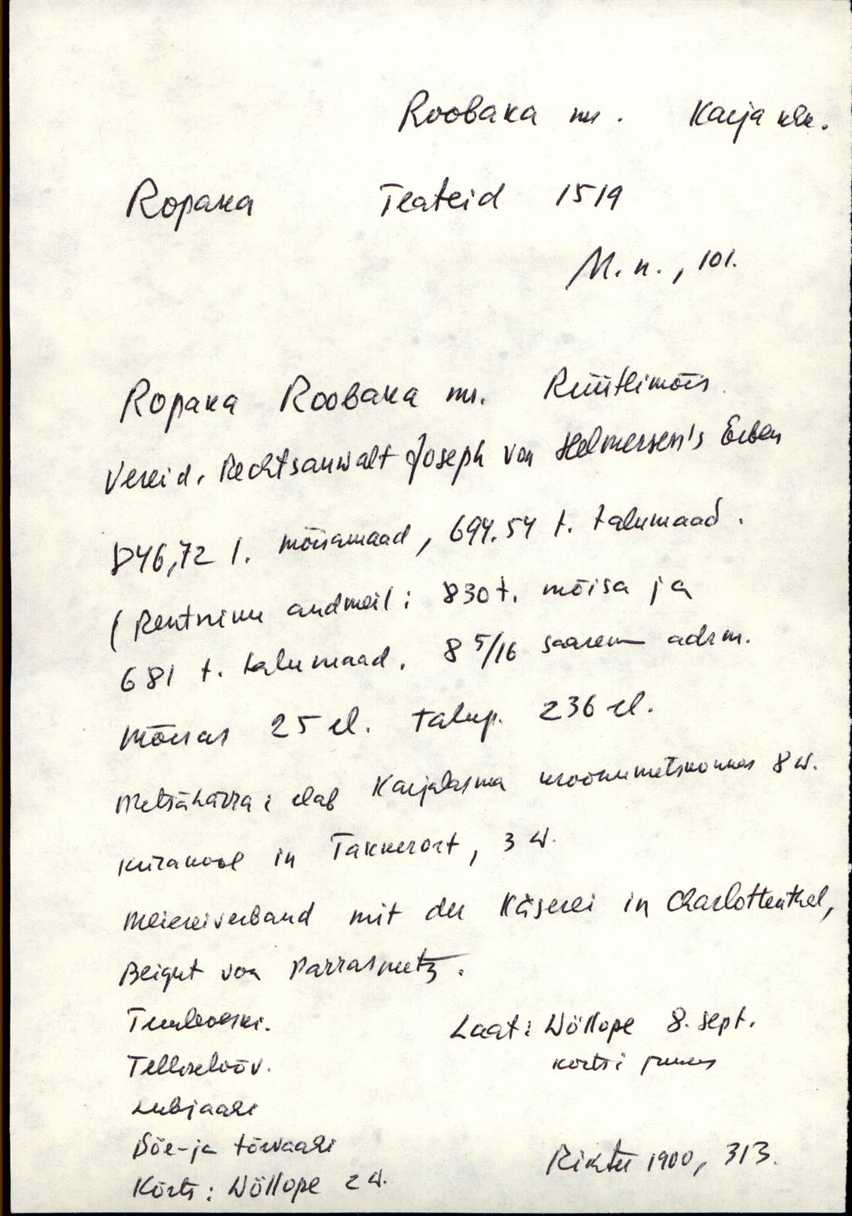 Roobaka ms. Karja khk.
Ropaka Teateid 1519
M.n., 101.
Ropaka Roobaka ms. Rüütlimõis
Vereid. Rechtsanwalt Joseph von Helmersen's Erben
846,72 t. mõisamaad, 694.54 t. talumaad.
(Rentniku andmeil: 830 t. mõisa ja
681 t. talumaad. 8 5/16 saarem adrm.
Mõisas 25 el. talup. 236 el.
Metsahärra: elab Karjalasma kroonumetskonnas 8 w.
in Takkerort, 3 w.
Meiereiverband mit der Käserei in Charlottenthal,
Beigut von Parrasmetz.
Tuuleveski. Laat: Wöllope 8. sept.
Telliselööv. kõrtsi juures
Lubjaahi
Söe-ja tõrvaahi
Kõrts: Wöllope 2 w. Rikhter 1900, 313.